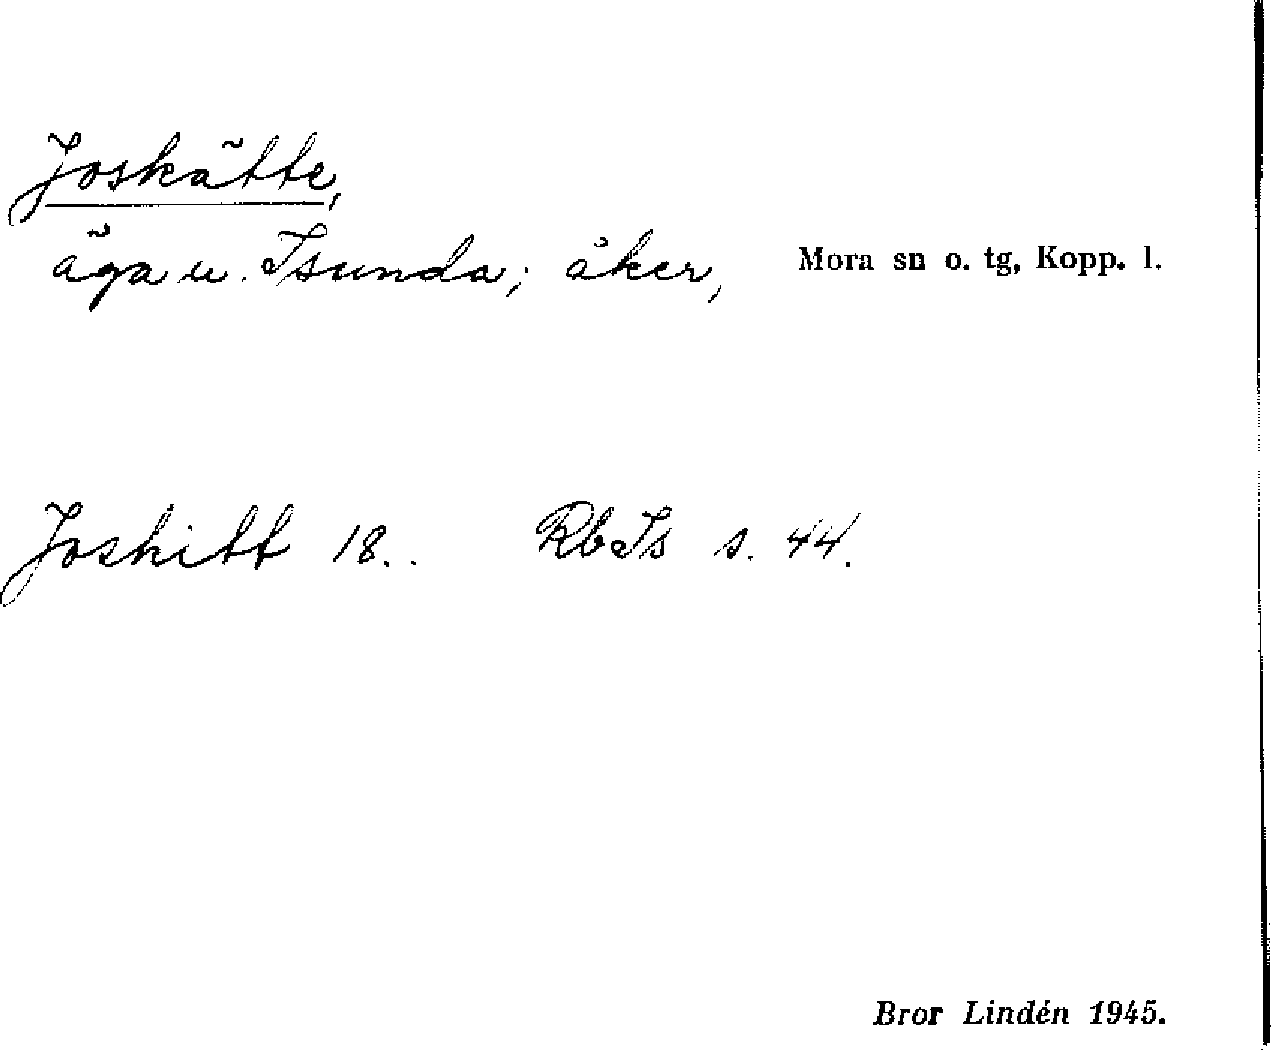 Joskätte,
äga u. Isunda; åker, Mora sn o. tg, Kopp. l.
Joskitt 18.. RbIs s. 44.
Bror Lindén 1945.